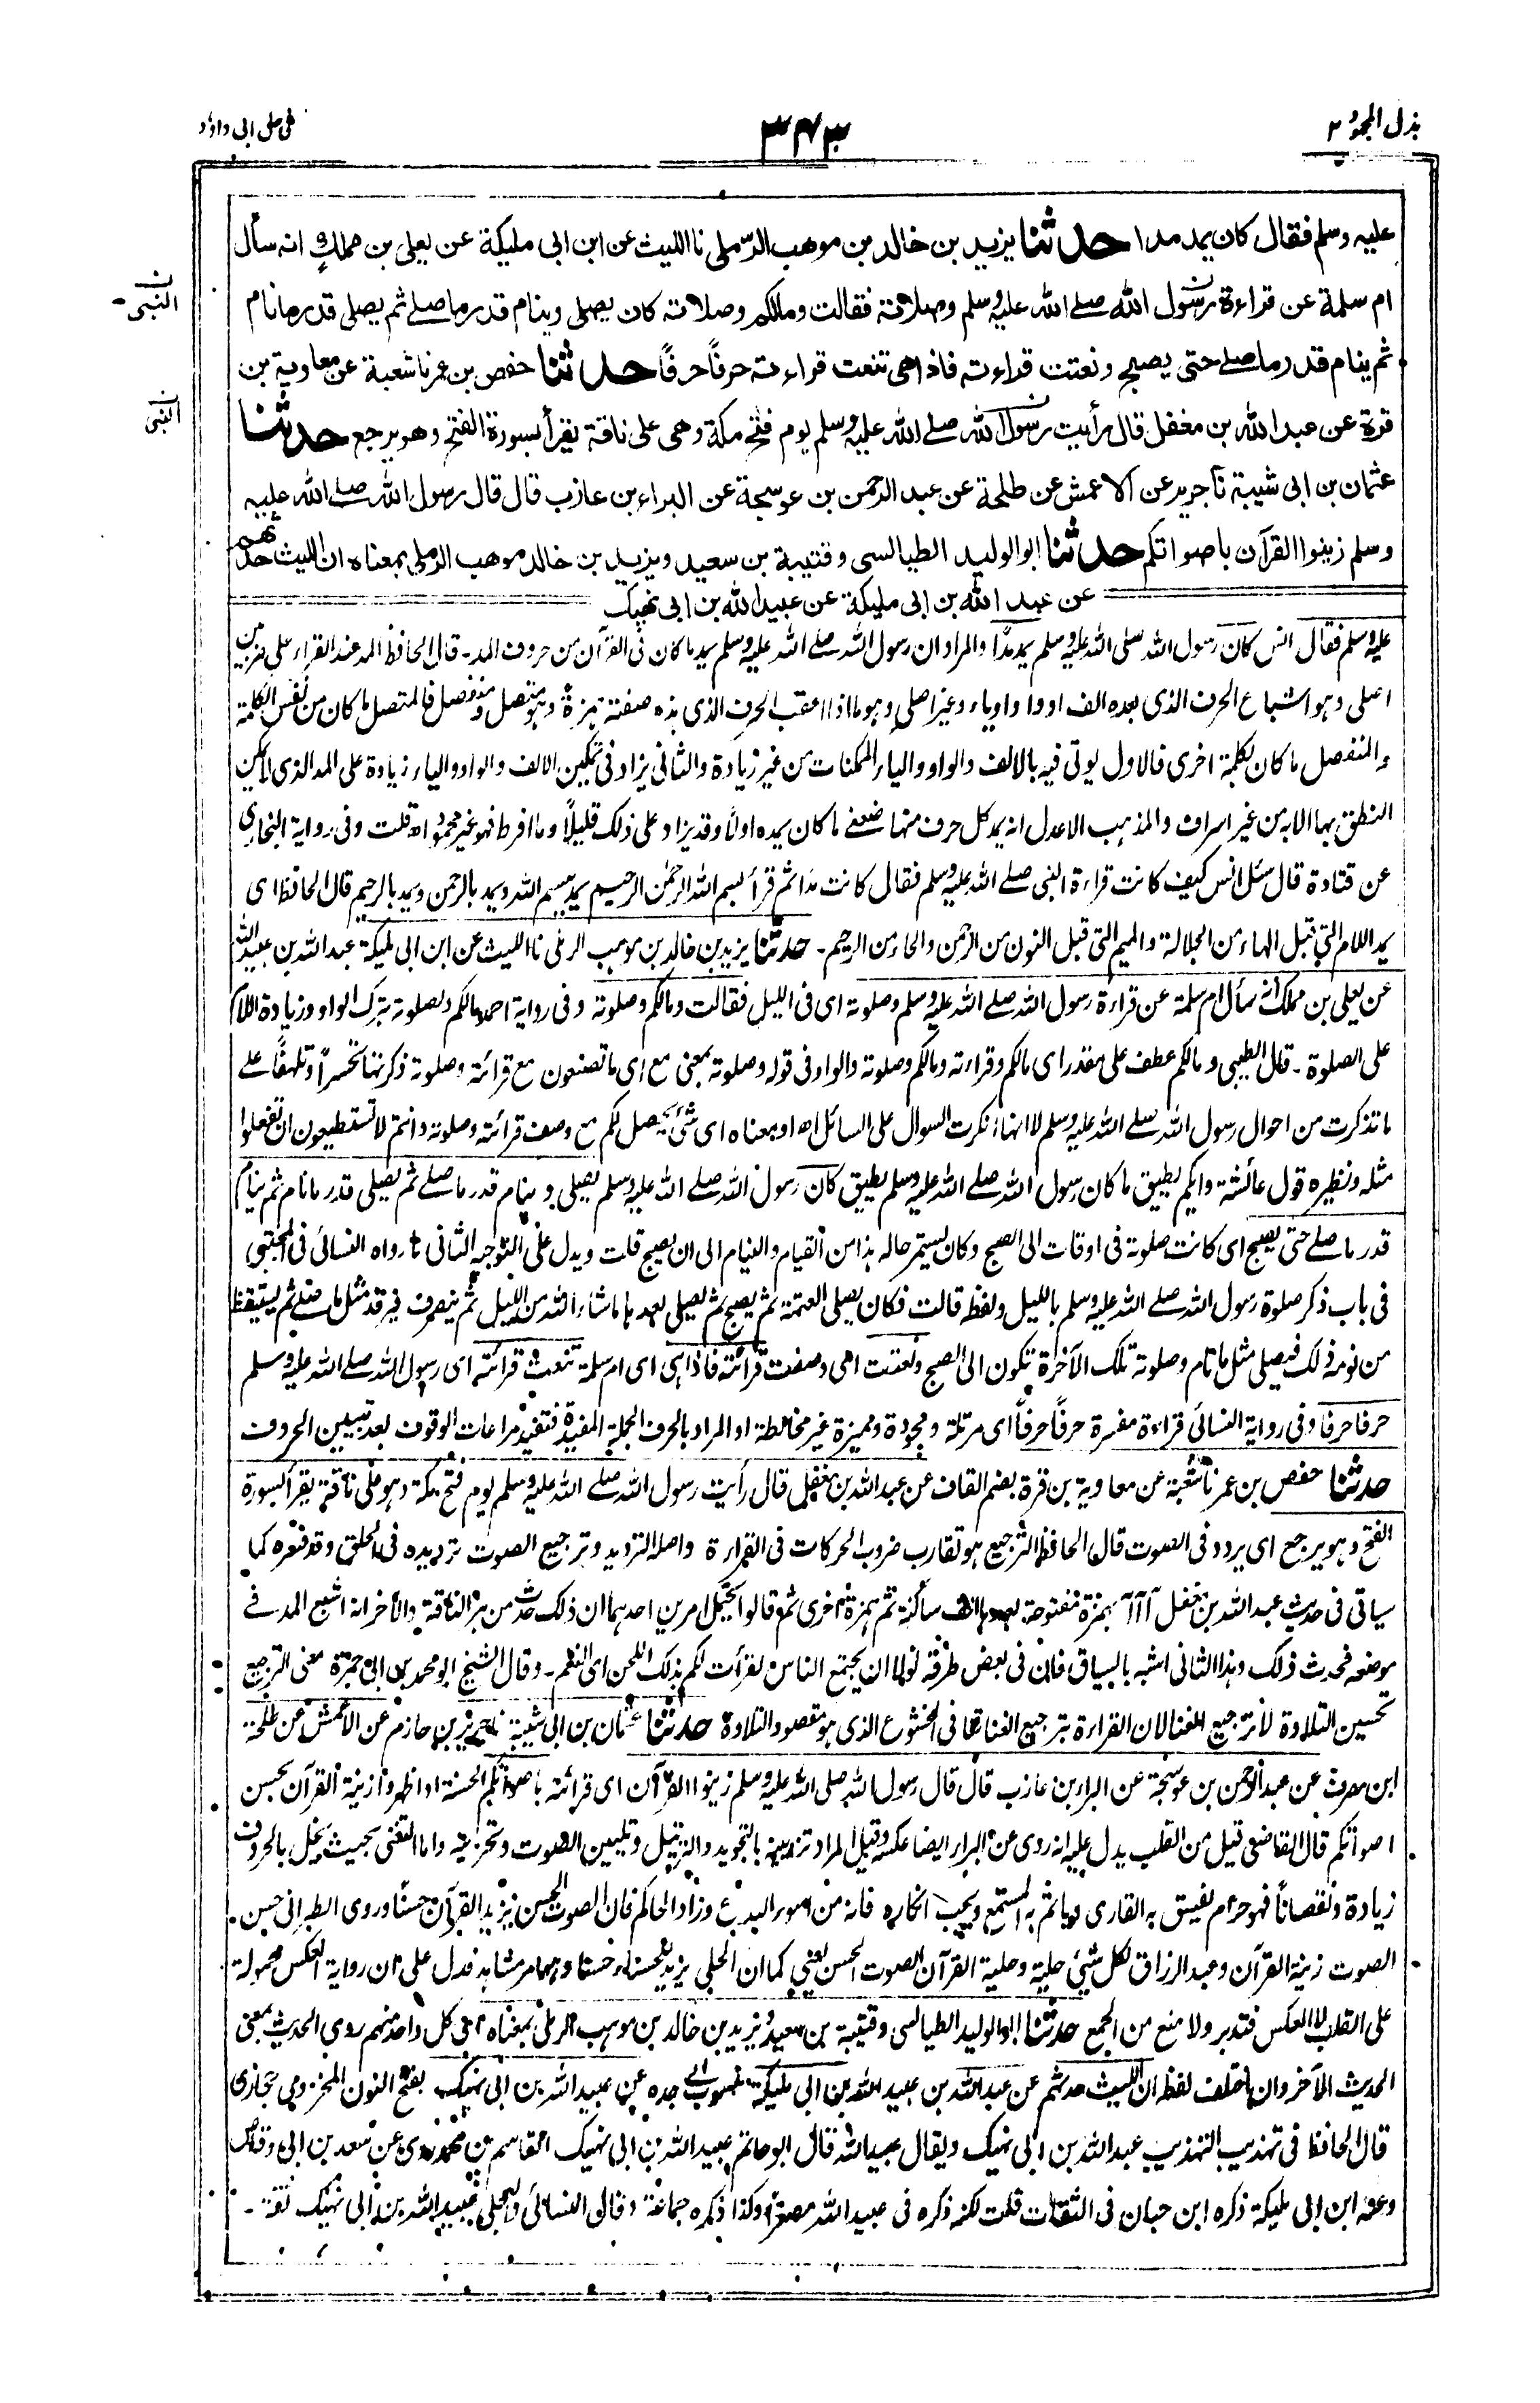 بذل المجهود ٢
٣٤٣
فی حل ابی داؤد
علیہ وسلم فقال کان یمد مدا حدثنا یزید بن خالد بن موهب الرملی نا اللیث عن ابن ابی ملیکة عن یعلی بن مملک انه سأل
ام سلمة عن قراءة رسول الله صلے الله علیہ وسلم وصلاته فقالت ومالکم وصلاته کان یصلی وینام قدر ما صلے ثم یصلی قدر ما نام
النبی
ثم ینام قدر ما صلے حتی یصبح ونعتت قراءته فاذا هی تنعت قراءته حرفاً حرفاً حدثنا حفص بن عمر نا شعبة عن معاویة بن
قرة عن عبد الله بن مغفل قال رأیت رسول الله صلے الله علیہ وسلم یوم فتح مکة وهی علی ناقة یقرأ بسورة الفتح وهو یرجع حدثنا
النبی
عثمان بن ابی شیبة نا جریر عن الاعمش عن طلحة عن عبد الرحمن بن عوسجة عن البراء بن عازب قال قال رسول الله صلے الله علیه
وسلم زینوا القرآن باصواتکم حدثنا ابو الولید الطیالسی وقتیبة بن سعید ویزید بن خالد موهب الرملی بمعناه ان اللیث حدثهم
عن عبد الله بن ابی ملیکة عن عبید الله بن ابی نهیک
علیہ وسلم فقال انس کان رسول الله صلی الله علیہ وسلم یمد مدًّا والمراد ان رسول الله صلے الله علیہ وسلم یمد ما کان فی القرآن من حروف المد ۔ قال الحافظ المد عند القراء علی ضربین
اصلی وهو اشباع الحرف الذی بعده الف او واو او یاء وغیر اصلی وهو ما اذا اعقب الحرف الذی هذه صفته همزة وهو متصل ومنفصل فالمتصل ما کان من نفس الکلمة
والمنفصل ما کان بکلمة اخری فالاول یوتی فیه بالالف والواو والیاء الممکنات من غیر زیادة والثانی یزاد فی تمکین الالف والواو والیاء زیادة علی المد الذی لا یمکن
النطق بها الا به من غیر اسراف والمذهب الاعدل انه یمد کل حرف منها ضعفی ما کان یمده اولاً وقد یزاد علی ذلک قلیلاً وما افرط فهو غیر محمود اھ قلت وفی روایة البخاری
عن قتادة قال سئل انس کیف کانت قراءة النبی صلے الله علیہ وسلم فقال کانت مدا ثم قرأ بسم الله الرحمٰن الرحیم یمد ببسم الله ویمد بالرحمن ویمد بالرحیم قال الحافظ ای
یمد اللام التی قبل الهاء من الجلالة والمیم التی قبل النون من الرحمن والحاء من الرحیم ۔ حدثنا یزید بن خالد بن موهب الرملی نا اللیث عن ابن ابی ملیکة عبد الله بن عبید الله
عن یعلی بن مملک انه سأل ام سلمة عن قراءة رسول الله صلے الله علیہ وسلم وصلوته ای فی اللیل فقالت ومالکم وصلوته وفی روایة احمد مالکم ولصلوته بترک الواو وزیادة اللام
علی الصلوة ۔ قال الطیبی ومالکم عطف علی مقدر ای مالکم وقراءته ومالکم وصلوته والواو فی قوله وصلوته بمعنی مع ای ما تصنعون مع قرائته وصلوته ذکرتها تحسراً وتلهفاً علے
ما تذکرت من احوال رسول الله صلے الله علیہ وسلم لا انها انکرت السوال علی السائل اھ او معناه ای شئ یحصل لکم مع وصف قرائته وصلوته وانتم لا تستطیعون ان تفعلوا
مثله ونظیره قول عائشة وایکم یطیق ما کان رسول الله صلے الله علیه وسلم یطیق کان رسول الله صلے الله علیہ وسلم یصلی وینام قدر ما صلے ثم یصلی قدر ما نام ثم ینام
قدر ما صلے حتی یصبح ای کانت صلوته فی اوقات الی الصبح وکان یستمر حاله هذا من القیام والنیام الی ان یصبح قلت ویدل علی التوجیه الثانی ما رواه النسائی فی المجتبی
فی باب ذکر صلوة رسول الله صلے الله علیہ وسلم باللیل ولفظه قالت فکان یصلی العتمة ثم یصبح ثم یصلی بعدها ما شاء الله من اللیل ثم ینصرف فیرقد مثل ما صلے ثم یستیقظ
من نومه ذلک فیصلی مثل ما نام وصلوته تلک الآخرة تکون الی الصبح ونعتت ای وصفت قرائته فاذا هی ای ام سلمة تنعت قرائته ای رسول الله صلے الله علیہ وسلم
حرفا حرفا وفی روایة النسائی قراءة مفسرة حرفاً حرفاً ای مرتلة ومجودة وممیزة غیر مخالطة او المراد بالحرف الجملة المفیدة فتفید مراعات الوقوف بعد تبیین الحروف
حدثنا حفص بن عمر نا شعبة عن معاویة بن قرة بضم القاف عن عبد الله بن مغفل قال رأیت رسول الله صلے الله علیہ وسلم یوم فتح مکة وهو علی ناقته یقرأ بسورة
الفتح وهو یرجع ای یردد فی الصوت قال الحافظ الترجیع هو تقارب ضروب الحرکات فی القراءة واصله التردید وترجیع الصوت تردیده فی الحلق وقد فسره کما
سیاتی فی حدیث عبد الله بن مغفل آ آ آ بهمزة مفتوحة بعدها الف ساکنة ثم همزة اخری ثم قالوا یحتمل امرین احدهما ان ذلک حدث من هز الناقة والآخر انه اشبع المد فے
موضعه فحدث ذلک وهذا الثانی اشبه بالسیاق فان فی بعض طرقه لولا ان یجتمع الناس لقرأت لکم بذلک اللحن ای النغم ۔ وقال الشیخ ابو محمد بن ابی جمرة معنی الترجیع
تحسین التلاوة لا ترجیع الغنا لان القراءة بترجیع الغنا تنافی الخشوع الذی هو مقصود التلاوة حدثنا عثمان بن ابی شیبة نا جریر بن حازم عن الاعمش عن طلحة
ابن مصرف عن عبد الرحمن بن عوسجة عن البراء بن عازب قال قال رسول الله صلی الله علیہ وسلم زینوا القرآن ای قرائته باصواتکم الحسنة او اظهروا زینة القرآن بحسن
اصواتکم قال القاضی قیل من القلب یدل علیه انه روی عن البراء ایضا عکسه وقیل المراد تزیینه بالتجوید والترتیل وتلیین الصوت وتحزینه واما التغنی بحیث یخل بالحروف
زیادة ونقصاناً فهو حرام یفسق به القاری ویاثم به المستمع ویجب انکاره فانه من اسوء البدع وزاد الحاکم فان الصوت الحسن یزید القرآن حسنا وروی الطبرانی حسن
الصوت زینة القرآن وعبد الرزاق لکل شیئ حلیة وحلیة القرآن الصوت الحسن یعنی کما ان الحلی یزید الحسناء حسنا وهو امر مشاهد فدل علی ان روایة العکس محمولة
علی القلب لا العکس فتدبر ولا منع من الجمع حدثنا ابو الولید الطیالسی وقتیبة بن سعید ویزید بن خالد بن موهب الرملی بمعناه ای کل واحد منهم روی الحدیث بمعنی
الحدیث الآخر وان اختلف لفظه ان اللیث حدثهم عن عبد الله بن عبید الله بن ابی ملیکة منسوب الی جده عن عبید الله بن ابی نهیک بفتح النون المخزومی حجازی
قال الحافظ فی تهذیب التهذیب عبد الله بن ابی نهیک ویقال عبید الله قال ابو حاتم عبید الله بن ابی نهیک القاسم بن محمد روی عن سعد بن ابی وقاص
وعنه ابن ابی ملیکة ذکره ابن حبان فی الثقات قلت لکنه ذکره فی عبید الله مصغراً وکذا ذکره جماعة وقال النسائی والعجلی عبید الله بن ابی نهیک ثقة ۔